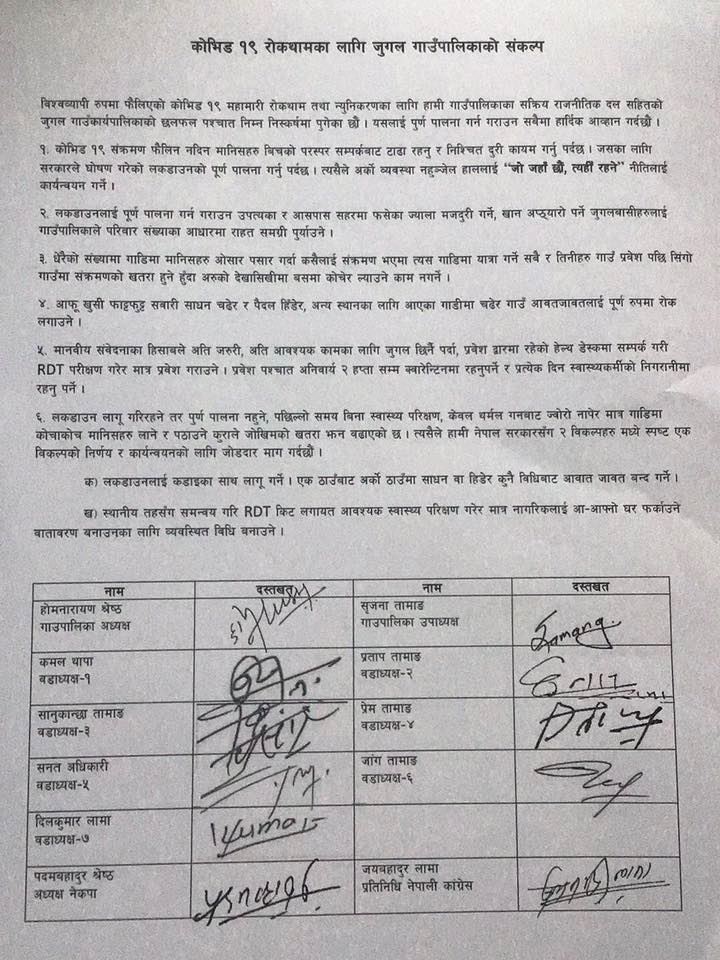 कोभिड १९ रोकथामका लागि जुगल गाउँपालिकाको संकल्प
विश्वव्यापी रुपमा फैलिएको कोभिड १९ महामारी रोकथाम तथा न्युनिकरणका लागि हामी गाउँपालिकाका सक्रिय राजनीतिक दल सहितको
जुगल गाउँकार्यपालिकाको छलफल पश्चात निम्न निस्कर्षमा पुगेका छौं । यसलाई पुर्ण पालना गर्न गराउन सबैमा हार्दिक आव्हान गर्दछौं ।
१. कोभिड १९ संक्रमण फैलिन नदिन मानिसहरु बिचको परस्पर सम्पर्कबाट टाढा रहनु र निश्चित दुरी कायम गर्नु पर्दछ । जसका लागि
सरकारले घोषण गरेको लकडाउनको पूर्ण पालना गर्नु पर्दछ । त्यसैले अर्को व्यवस्था नहुञ्जेल हाललाई "जो जहाँ छौं, त्यहीं रहने" नीतिलाई
कार्यन्वयन गर्ने ।
२. लकडाउनलाई पूर्ण पालना गर्न गराउन उपत्यका र आसपास सहरमा फसेका ज्याला मजदुरी गर्ने, खान अप्ठ्यारो पर्ने जुगलबासीहरुलाई
गाउँपालिकाले परिवार संख्याका आधारमा राहत समग्री पुर्याउने ।
३. धेरैको संख्यामा गाडिमा मानिसहरु ओसार पसार गर्दा कसैलाई संक्रमण भएमा त्यस गाडिमा यात्रा गर्ने सबै र तिनीहरु गाउँ प्रवेश पछि सिंगो
गाउँमा संक्रमणको खतरा हुने हुँदा अरुको देखासिखीमा बसमा कोचेर ल्याउने काम नगर्ने ।
४. आफू खुसी फाट्टफुट्ट सबारी साधन चढेर र पैदल हिँडेर, अन्य स्थानका लागि आएका गाडीमा चढेर गाउँ आबतजाबतलाई पूर्ण रुपमा रोक
लगाउने ।
५. मानवीय संबेदनाका हिसाबले अति जरुरी, अति आवश्यक कामका लागि जुगल छिर्नै पर्दा, प्रवेश द्वारमा रहेको हेल्थ डेस्कमा सम्पर्क गरी
RDT परीक्षण गरेर मात्र प्रवेश गराउने । प्रवेश पश्चात अनिवार्य २ हप्ता सम्म क्वारेन्टिनमा रहनुपर्ने र प्रत्येक दिन स्वास्थ्यकर्मीको निगरानीमा
रहनु पर्ने ।
६. लकडाउन लागू गरिरहने तर पुर्ण पालना नहुने, पछिल्लो समय बिना स्वास्थ्य परिक्षण, केवल थर्मल गनबाट ज्वोरो नापेर मात्र गाडिमा
कोचाकोच मानिसहरु लाने र पठाउने कुराले जोखिमको खतरा झन बढाएको छ । त्यसैले हामी नेपाल सरकारसँग २ विकल्पहरु मध्ये स्पष्ट एक
विकल्पको निर्णय र कार्यन्वयनको लागि जोडदार माग गर्दछौं ।
क) लकडाउनलाई कडाइका साथ लागू गर्ने । एक ठाउँबाट अर्को ठाउँमा साधन वा हिडेर कुनै बिधिबाट आवात जावत बन्द गर्ने ।
ख) स्थानीय तहसँग समन्वय गरि RDT किट लगायत आवश्यक स्वास्थ्य परिक्षण गरेर मात्र नागरिकलाई आ-आफ्नो घर फर्काउने
वातावरण बनाउनका लागि ब्यवस्थित बिधि बनाउने ।
नाम दस्तखत नाम दस्तखत
होमनारायण श्रेष्ठ सृजना तामाङ
गाउपालिका अध्यक्ष गाउपालिका उपाध्यक्ष
Tamang
कमल थापा प्रताप तामाङ
वडाध्यक्ष-१ वडाध्यक्ष-२
सानुकान्छा तामाङ प्रेम तामाङ
वडाध्यक्ष-३ वडाध्यक्ष-४
सनत अधिकारी जांग तामाङ
वडाध्यक्ष-५ वडाध्यक्ष-६
दिलकुमार लामा
वडाध्यक्ष-७
पदमबहादुर श्रेष्ठ जयबहादुर लामा
अध्यक्ष नेकपा प्रतिनिधि नेपाली कांग्रेस